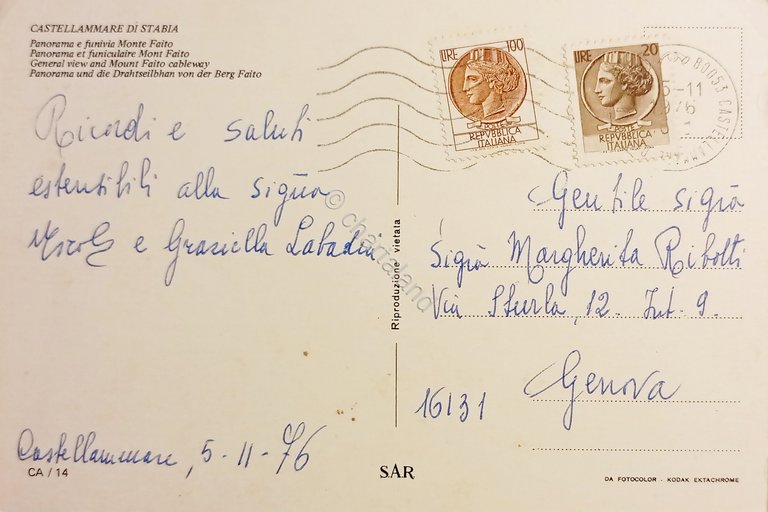 CASTELLAMMARE DI STABIA
Panorama e funivia Monte Faito
Panorama et funiculaire Mont Faito
General view and Mount Faito cableway
Panorama und die Drahtseilbhan von der Berg Faito
Ricordi e saluti
estensibili alla Sigña
e Graziella Labadini
Castellammare, 5-11-76
CA / 14
Riproduzione vietata
SAR
LIRE 100
REPVBBLICA
ITALIANA
LIRE 20
REPVBBLICA
ITALIANA
80053 CASTELLAMMARE
5-11
1976
Gentile Sigrã
Sigrã Margherita Ribolti
Via Sturla, 12. Int. 9.
16131 Genova
DA FOTOCOLOR - KODAK EKTACHROME
© chartaland